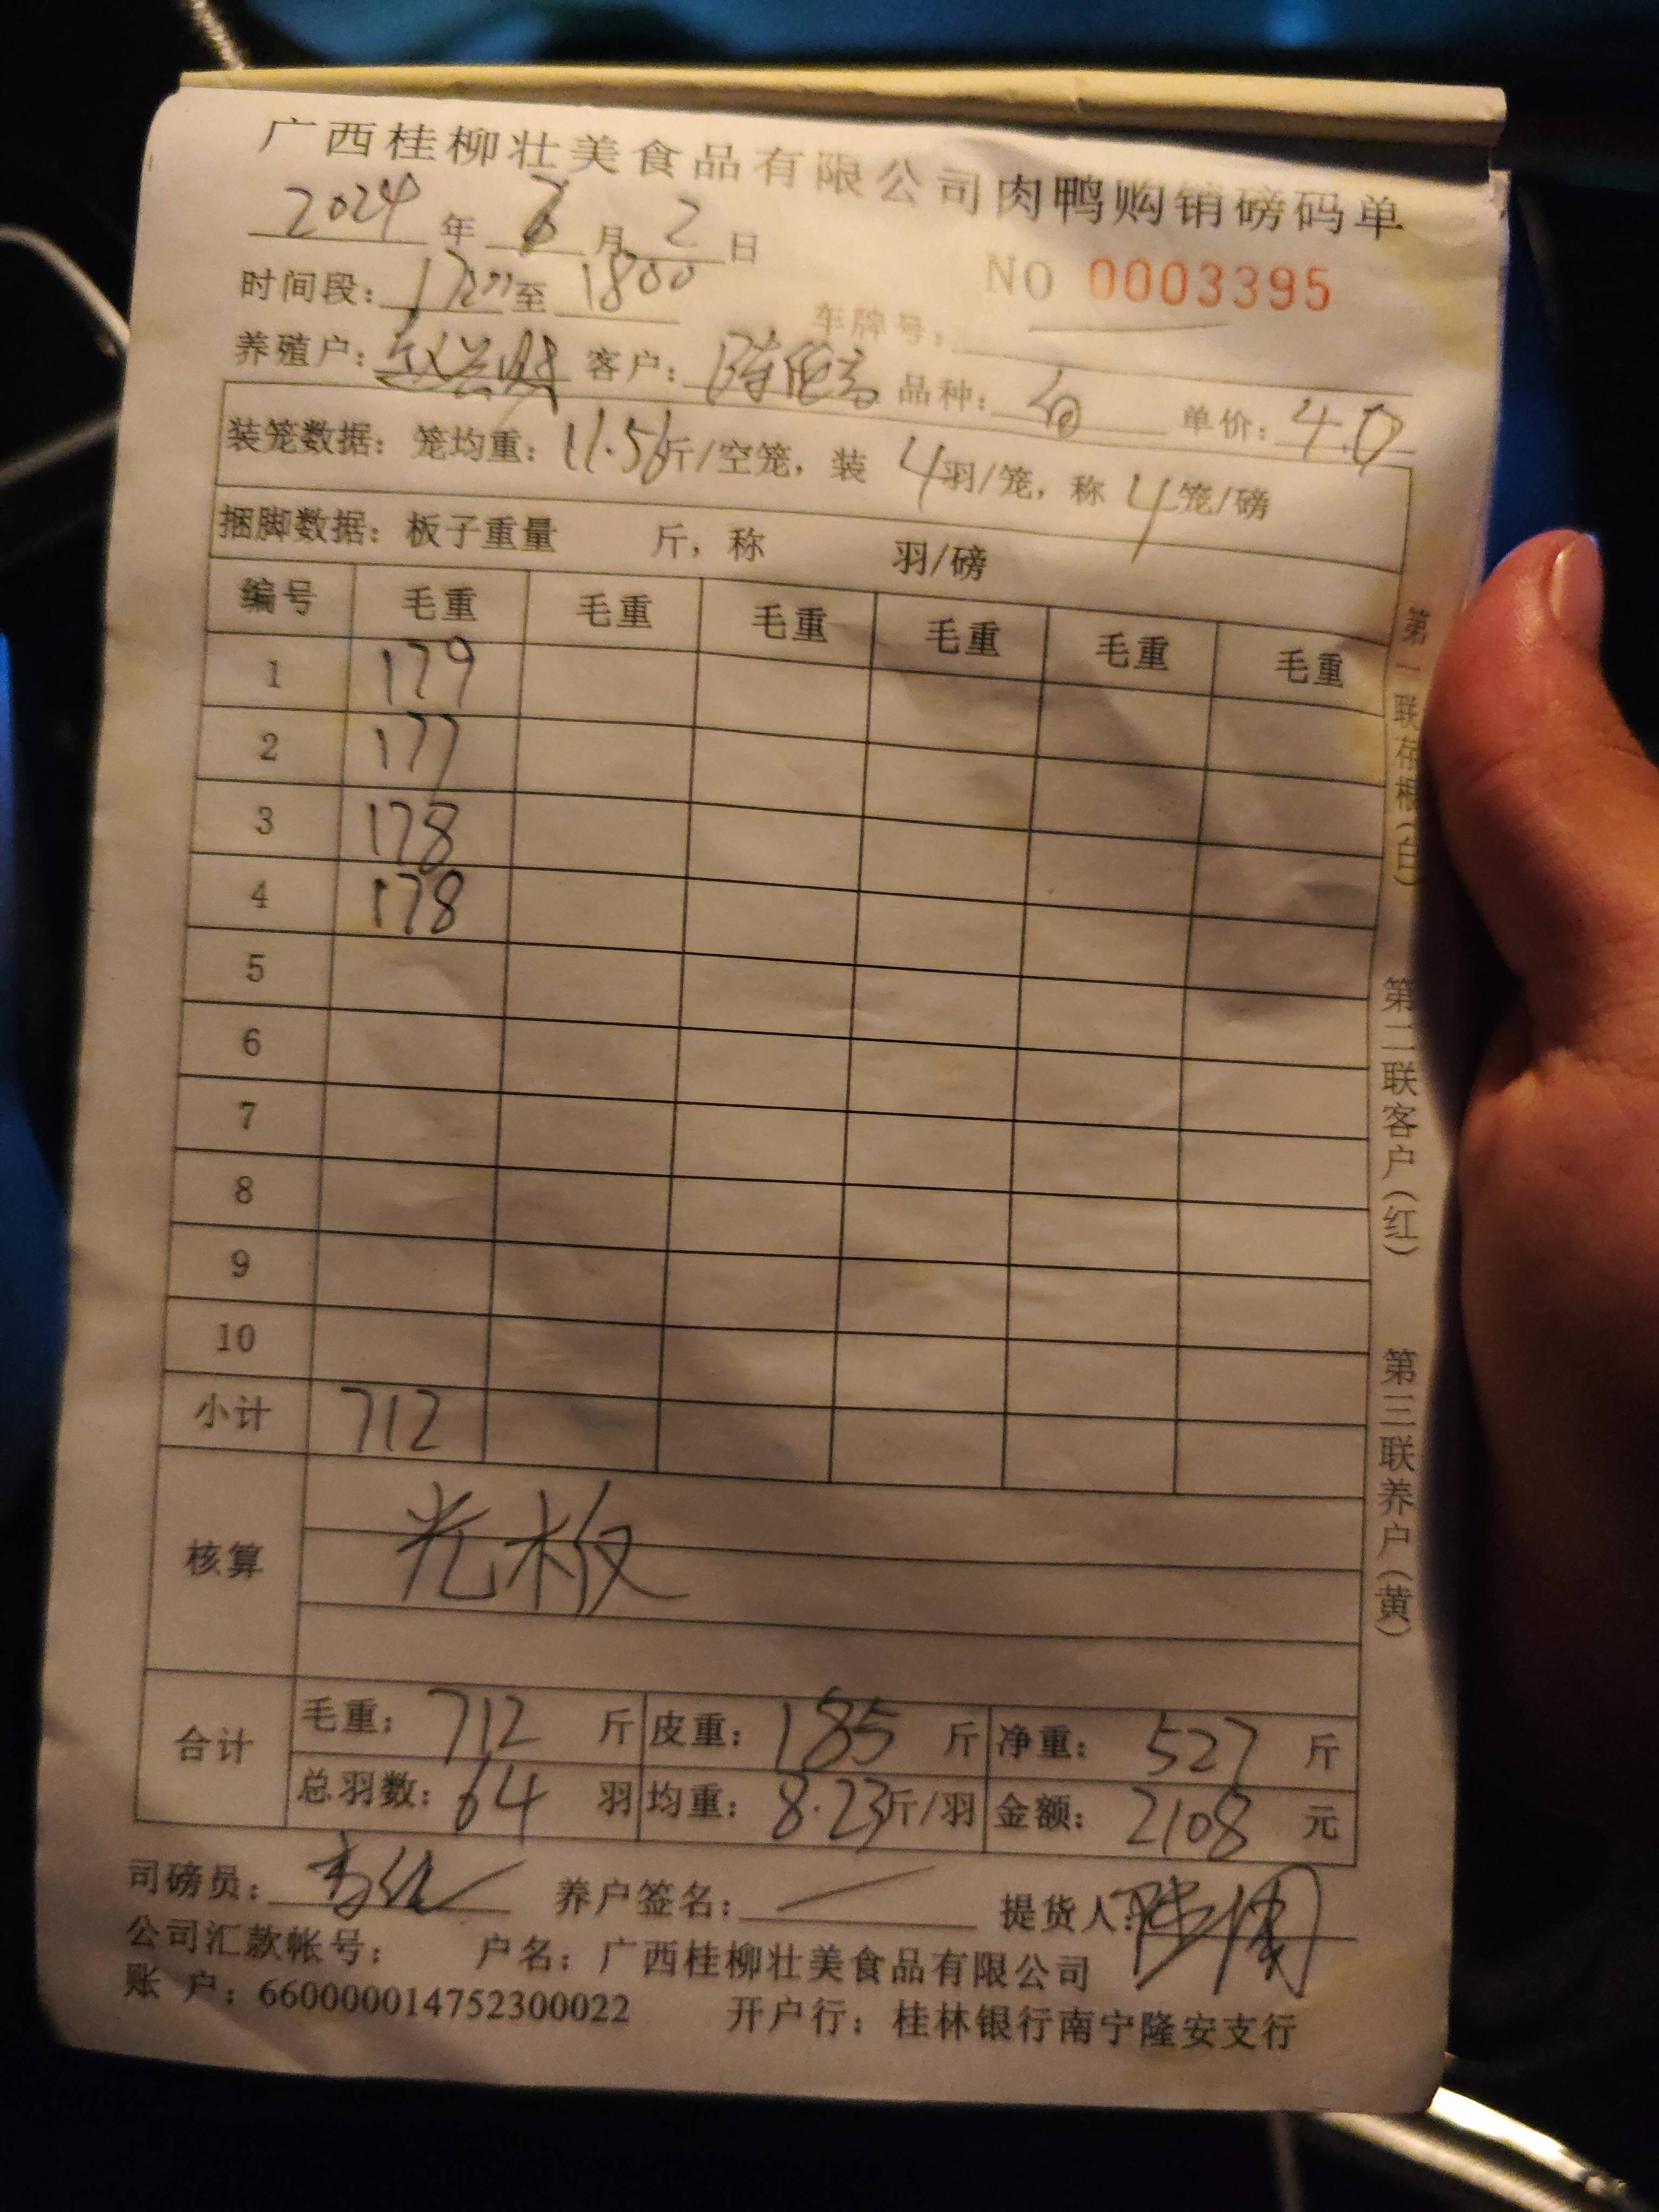 广西桂柳壮美食品有限公司肉鸭购销磅码单
2024年 月2日
NO 0003395
时间段：1700至1800 车牌号：
养殖户： 客户： 品种：白 单价：4.0
装笼数据：笼均重：11.56斤/空笼，装4羽/笼，称4笼/磅
捆脚数据：板子重量 斤，称 羽/磅
编号 毛重 毛重 毛重 毛重 毛重 毛重
1 179
2 177
3 178
4 178
5
6
7
8
9
10
小计 712
核算 光板
合计 毛重：712斤 皮重：185斤 净重：527斤
总羽数：64羽 均重：8.23斤/羽 金额：2108元
司磅员： 养户签名： 提货人：
公司汇款帐号： 户名：广西桂柳壮美食品有限公司
账 户：660000014752300022 开户行：桂林银行南宁隆安支行
第一联存根（白） 第二联客户（红） 第三联养户（黄）